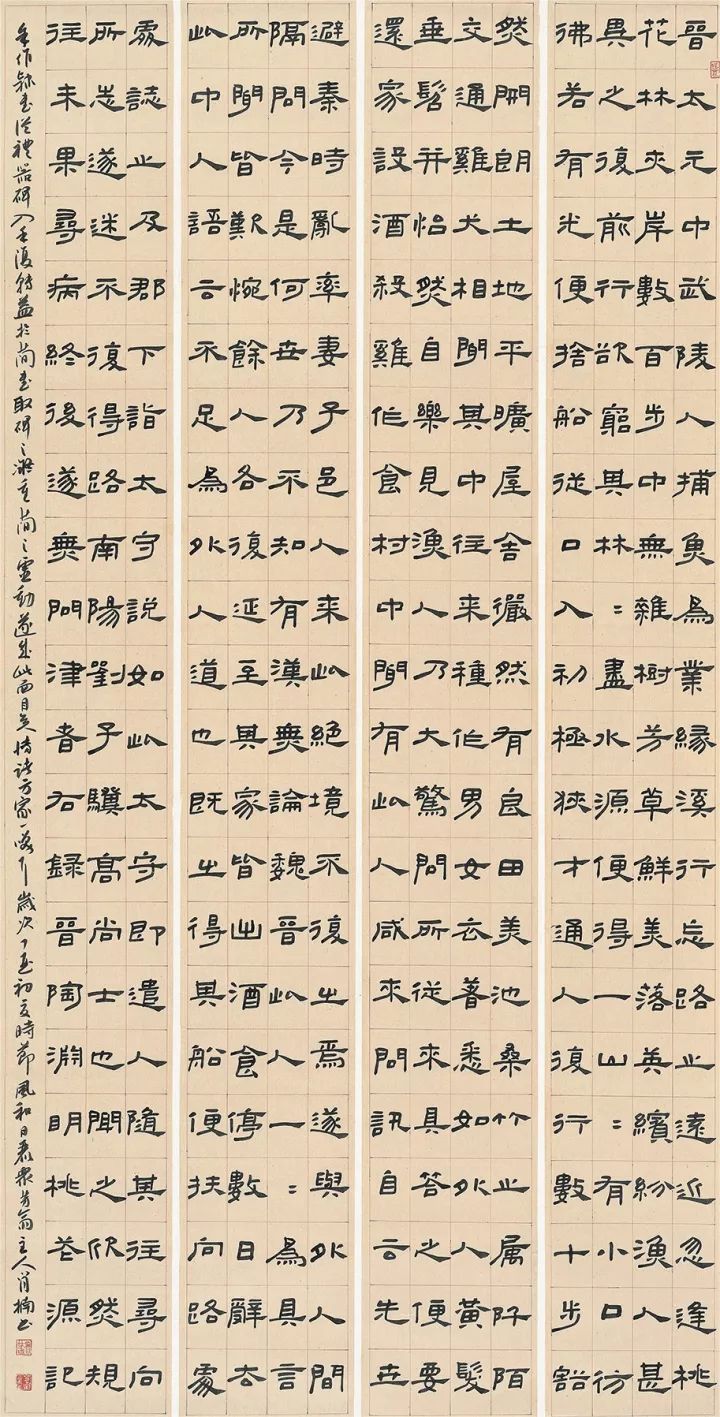 晉太元中武陵人捕魚為業緣溪行忘路之遠近忽逢桃
花林夾岸數百步中無雜樹芳草鮮美落英繽紛漁人甚
異之復前行欲窮其林=盡水源便得一山=有小口彷
彿若有光便捨船從口入初極狹才通人復行數十步豁
然開朗土地平曠屋舍儼然有良田美池桑竹之属阡陌
交通雞犬相聞其中往来種作男女衣著悉如外人黃髮
垂髫并怡然自樂見漁人乃大驚問所從來具答之便要
還家設酒殺雞作食村中聞有此人咸來問訊自云先世
避秦時亂率妻子邑人来此絕境不復出焉遂與外人間
隔問今是何世乃不知有漢無論魏晉此人一=為具言
所聞皆歎惋餘人各復延至其家皆出酒食停數日辭去
此中人語云不足為外人道也既出得其船便扶向路處
處誌之及郡下詣太守說如此太守即遣人隨其往尋向
所志遂迷不復得路南陽劉子驥高尚士也聞之欣然規
往未果尋病終後遂無問津者右錄晉陶淵明桃花源記
余作隸書從禮器碑入手後轉益於簡書取碑之凝重簡之靈動遂成此面目矣 方家一哂 歲次丁酉初夏時節風和日麗 主人肖楠书